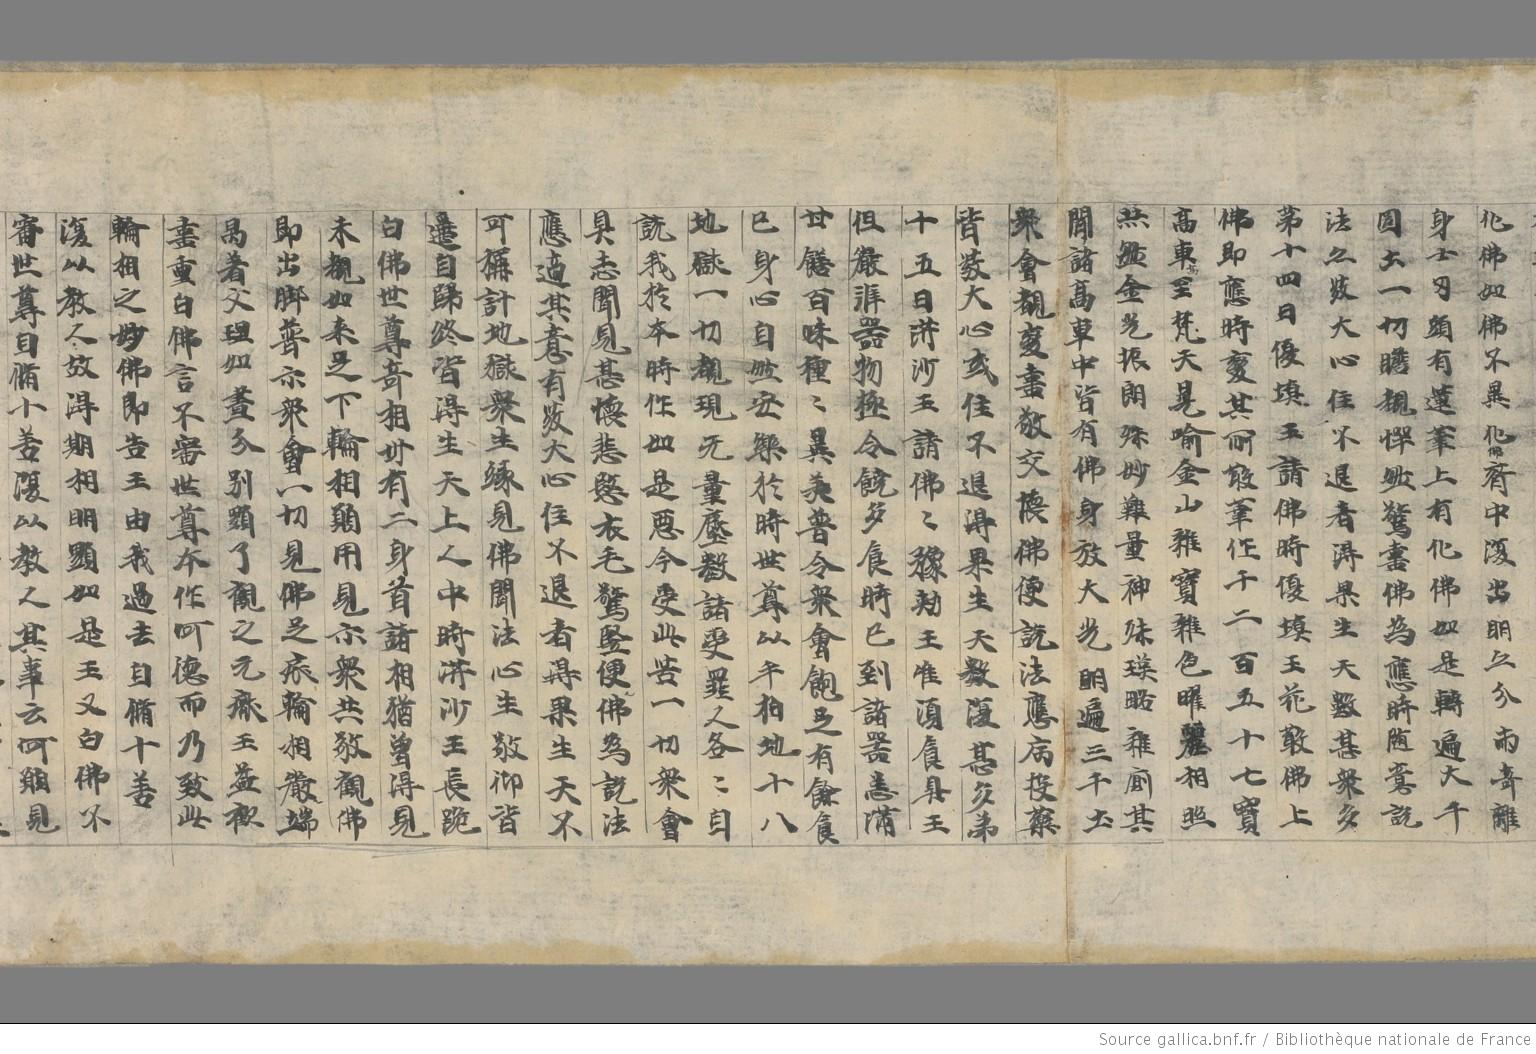 化佛如佛不異化佛齊中復出明亦分兩奇離
身七刃頭有蓮華上有化佛如是轉遍大千
國土一切瞻覩愕然驚喜佛為應時随意説
法亦發大心住不退者得果生天數甚衆多
第十四日優填王請佛時優填王花散佛上
佛即應時變其所散華作千二百五十七寶
高車高至梵天晃喻金山雜寶雜色曜麗相照
然然金光振朗殊妙難量神珠瑛昭雜廁其
間諸高車中皆有佛身放大光明遍三千土
衆會覩變喜敬交懷佛便説法應病投藥
皆發大心或住不退得果生天數復甚多弟
十五日洴沙王請佛佛豫勑王唯須食具王
但嚴淨器物極令饒多食時已到諸器悉滿
甘饍百味種種異美普令衆會飽足有餘食
已身心自然安樂於時世尊以手柏地十八
地獄一切覩現无量塵數諸受罪人各各自
説我於本時作如是惡今受此苦一切衆會
具志聞見甚懷悲愍衣毛驚竪便佛為説法
應適其意有發大心住不退者得果生天不
可稱計地獄衆生緣見佛聞法心生敬仰皆
遙自歸終皆得生天上人中時洴沙王長跪
白佛世尊奇相卅有二身首諸相猶曾得見
未覩如來足下輪相願用見示衆共敬觀佛
即出脚普示衆會一切見佛足底輪相嚴端
曷著文理如晝分別顯了觀之无厭王益歡
喜重白佛言不審世尊本作何德而乃致此
輪相之妙佛即告王由我過去自脩十善
復以教人故得期相明顯如是王又白佛不
審世尊自脩十善復以教人其事云何願見